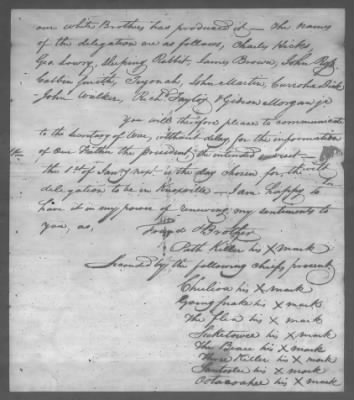 our white Brothers has produced it — The names
of the delegation are as follows, Charles Hicks,
Geo. Lowry, Sleeping Rabbit, James Brown, John Ross
Cabbin Smith, John Martin, Currohe Dick
John Walker, Richd Taylor & Gideon Morgan Jr
You will therefore please to communicate
to the Secretary of War, without delay, for the information
of our Father the President, the intended visit —
the 1st of Jany next is the day chosen for the
delegation to be in Knoxville — I am happy to
have it in my power of renewing my sentiments to
you, as, Friend & Brother
Path Killer his X mark
Seconded by the following chiefs present
Chulioa his X mark
Going Snake his X mark
The Flea his X mark
his X mark
The Beaver his X mark
Three Killer his X mark
his X mark
his X mark